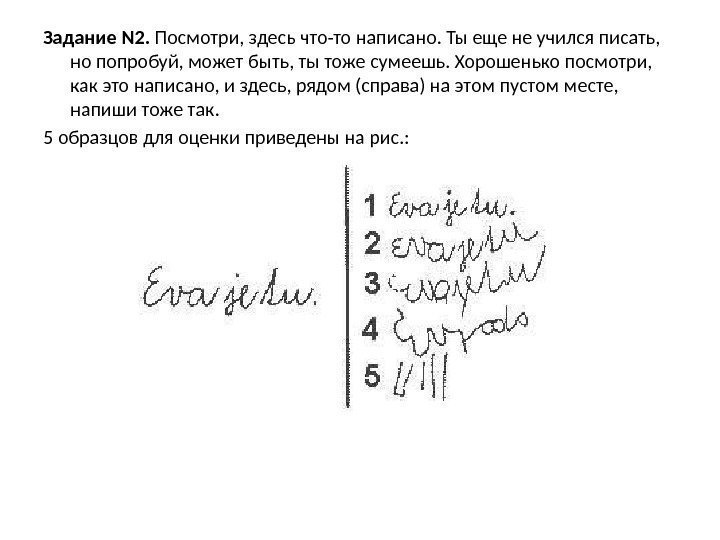 Задание N2. Посмотри, здесь что-то написано. Ты еще не учился писать,
но попробуй, может быть, ты тоже сумеешь. Хорошенько посмотри,
как это написано, и здесь, рядом (справа) на этом пустом месте,
напиши тоже так.
5 образцов для оценки приведены на рис.:
Eva je tu.
1 Eva je tu.
2 Eva je tu
3 Eva je tu
4
5